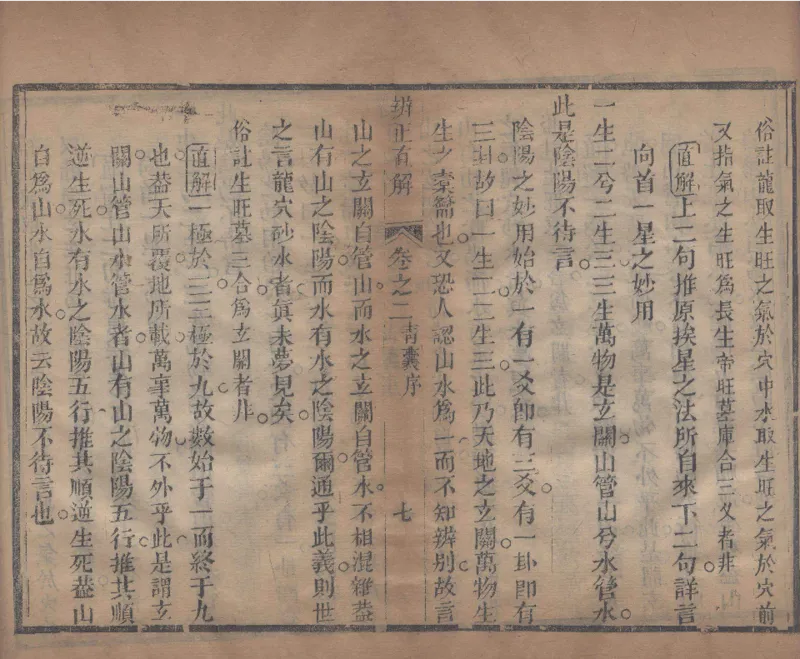 俗註龍取生旺之氣於穴中水取生旺之氣於穴前
又指氣之生旺為長生帝旺墓庫合三义者非
直解上二句推原挨星之法所自來下二句詳言
向首一星之妙用
一生二兮二生三三生萬物是玄關山管山兮水管水
此是陰陽不待言
陰陽之妙用始於一有一爻即有三爻有一卦即有
三卦故曰一生二二生三此乃天地之玄關萬物生
生之橐籥也又恐人認山水為一而不知辨別故言
辨正直解 卷之二 青囊序 七
山之玄關自管山而水之玄關自管水不相混雜葢
山有山之陰陽而水有水之陰陽爾通乎此義則世
之言龍穴砂水者眞未夢見矣
俗註生旺墓三合為玄關者非
直解二極於三三極於九故數始于一而終于九
也葢天所覆地所載萬事萬物不外乎此是謂玄
關山管山水管水者山有山之陰陽五行推其順
逆生死水有水之陰陽五行推其順逆生死葢山
自為山水自為水故云陰陽不待言也